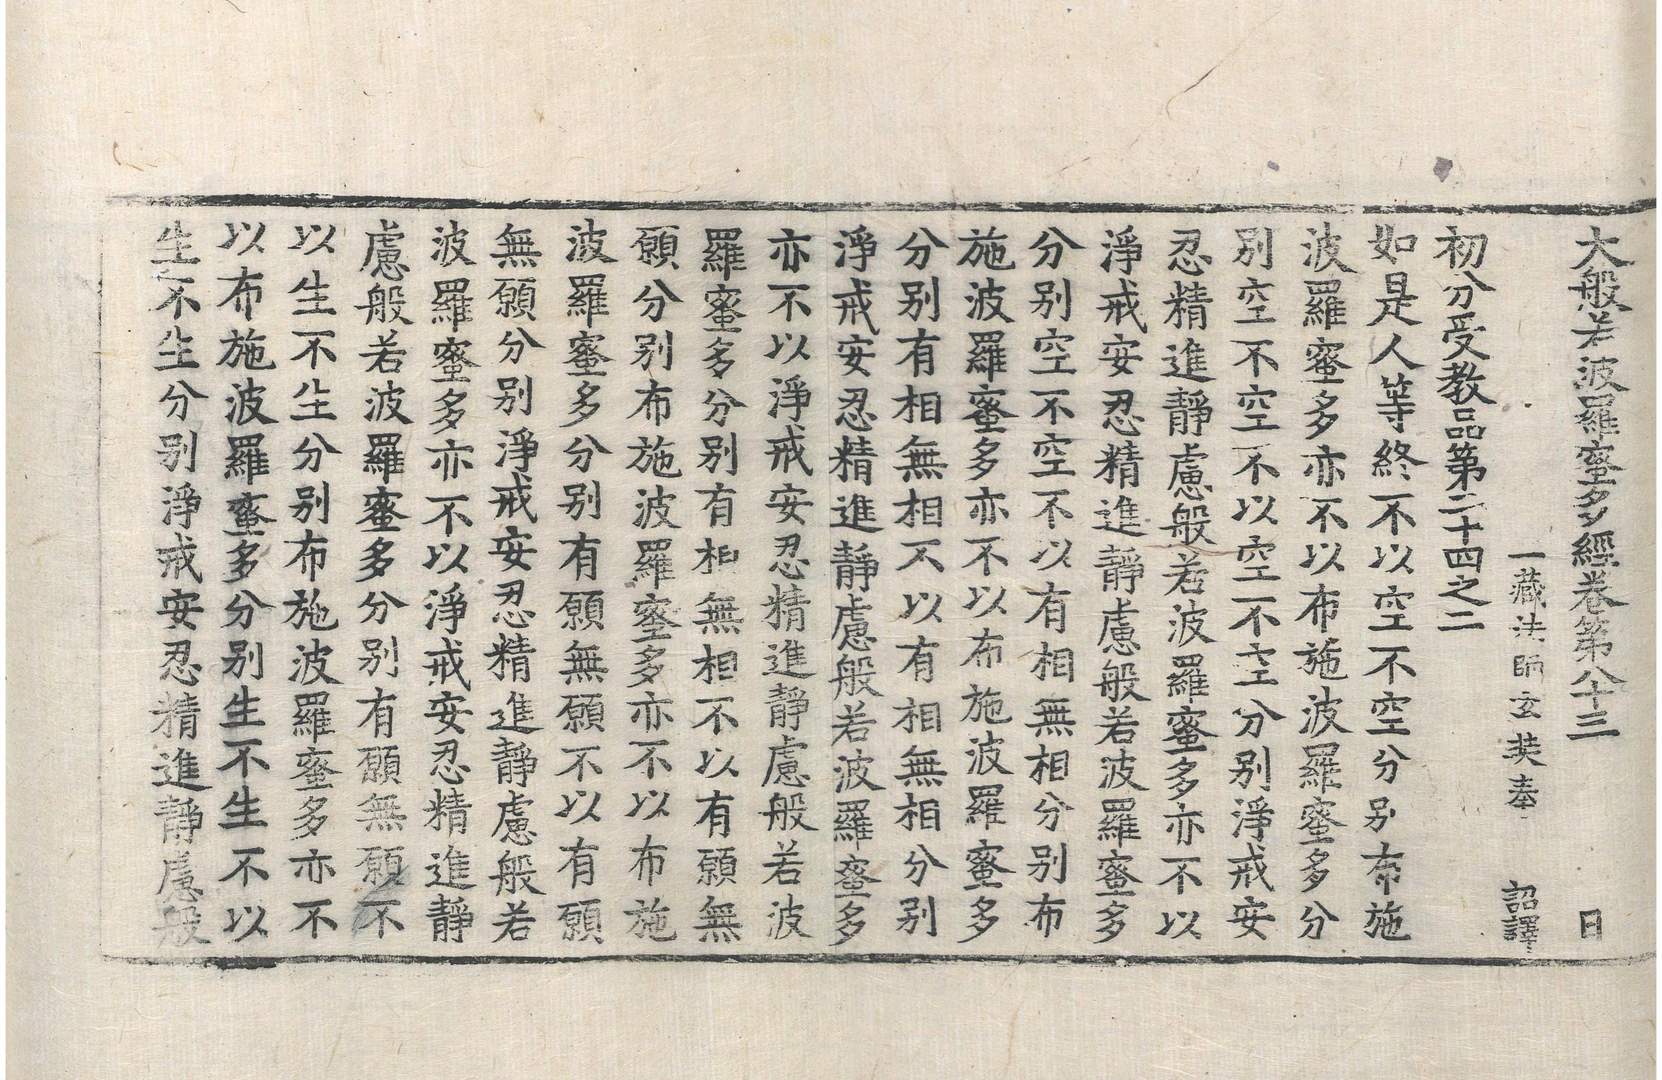 大般若波羅蜜多經卷第八十三 日
一藏法師玄奘奉 詔譯
初分受教品第二十四之二
如是人等終不以空不空分別布施
波羅蜜多亦不以布施波羅蜜多分
別空不空不以空不空分別淨戒安
忍精進靜慮般若波羅蜜多亦不以
淨戒安忍精進靜慮般若波羅蜜多
分別空不空不以有相無相分別布
施波羅蜜多亦不以布施波羅蜜多
分別有相無相不以有相無相分別
淨戒安忍精進靜慮般若波羅蜜多
亦不以淨戒安忍精進靜慮般若波
羅蜜多分別有相無相不以有願無
願分別布施波羅蜜多亦不以布施
波羅蜜多分別有願無願不以有願
無願分別淨戒安忍精進靜慮般若
波羅蜜多亦不以淨戒安忍精進靜
慮般若波羅蜜多分別有願無願不
以生不生分別布施波羅蜜多亦不
以布施波羅蜜多分別生不生不以
生不生分別淨戒安忍精進靜慮般